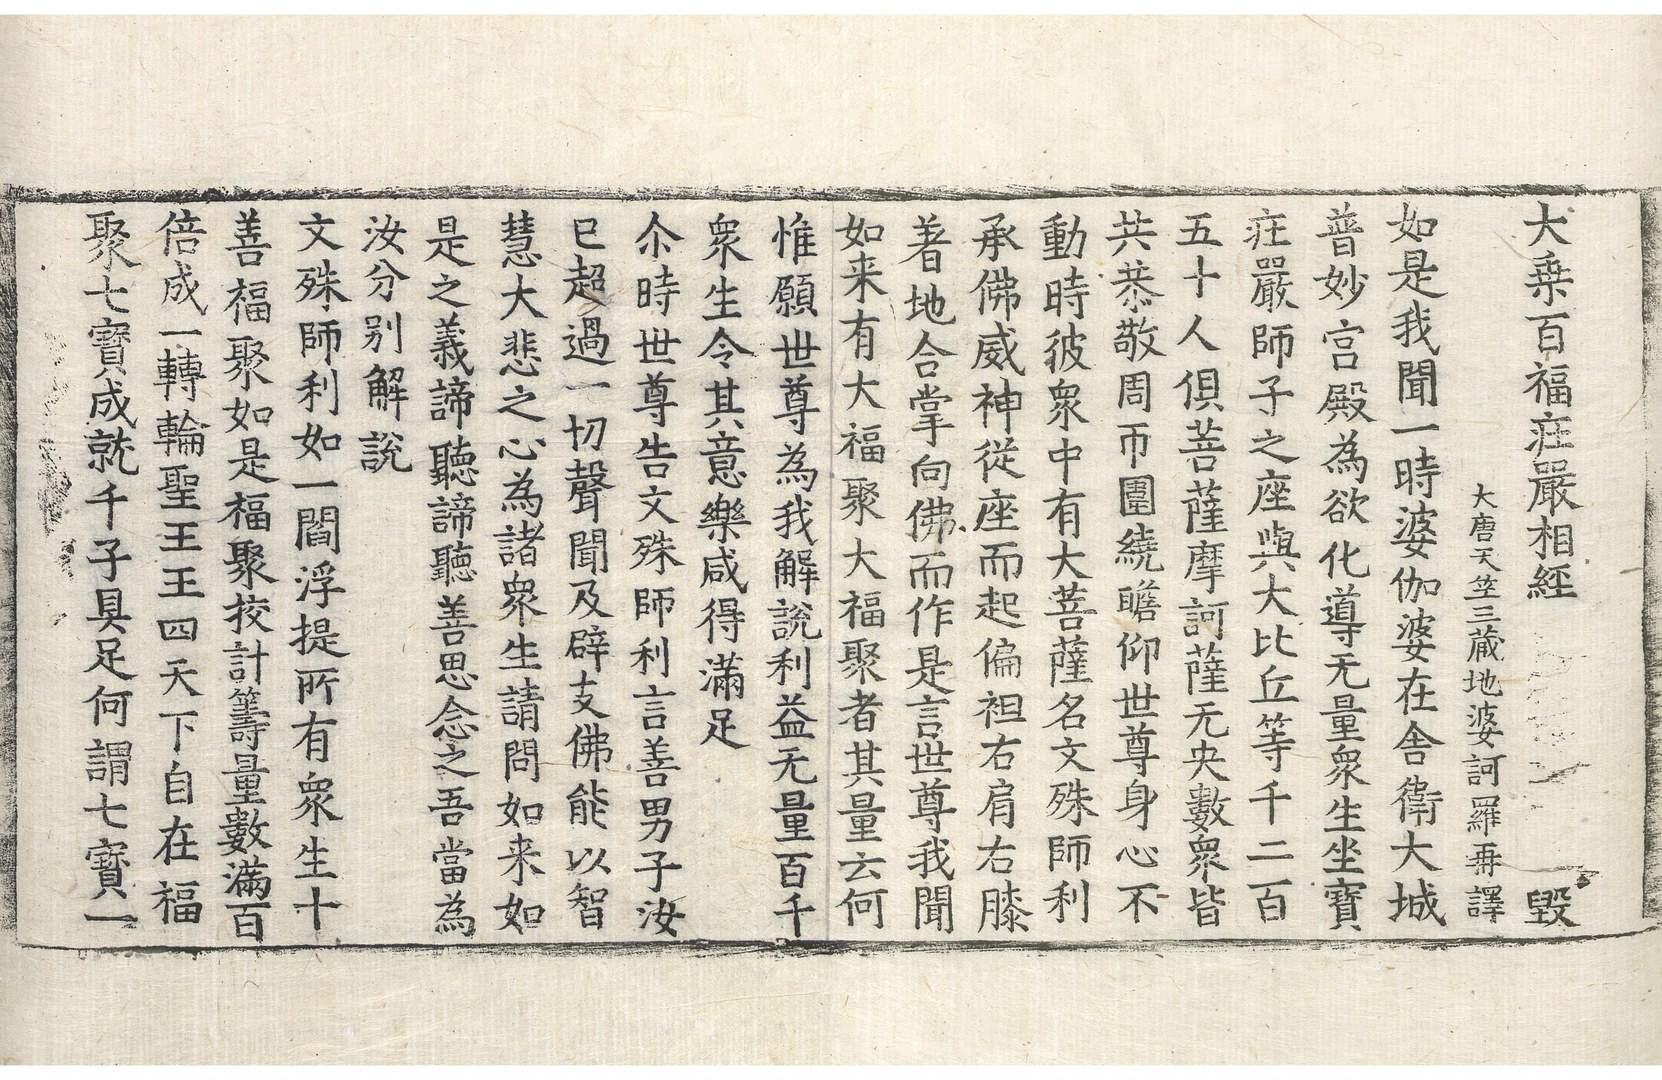 大乗百福庄嚴相經 毀
大唐天竺三藏地婆訶羅再譯
如是我聞一時婆伽婆在舍衛大城
普妙宫殿為欲化導无量衆生坐寶
庄嚴師子之座與大比丘等千二百
五十人俱菩薩摩訶薩无央數衆皆
共恭敬周帀圍繞瞻仰世尊身心不
動時彼衆中有大菩薩名文殊師利
承佛威神從座而起偏袒右肩右膝
著地合掌向佛而作是言世尊我聞
如来有大福聚大福聚者其量云何
惟願世尊為我解說利益无量百千
衆生令其意樂咸得滿足
尒時世尊告文殊師利言善男子汝
已超過一切聲聞及辟支佛能以智
慧大悲之心為諸衆生請問如来如
是之義諦聽諦聽善思念之吾當為
汝分别解說
文殊師利如一閻浮提所有衆生十
善福聚如是福聚挍計籌量數滿百
倍成一轉輪聖王王四天下自在福
聚七寶成就千子具足何謂七寶一